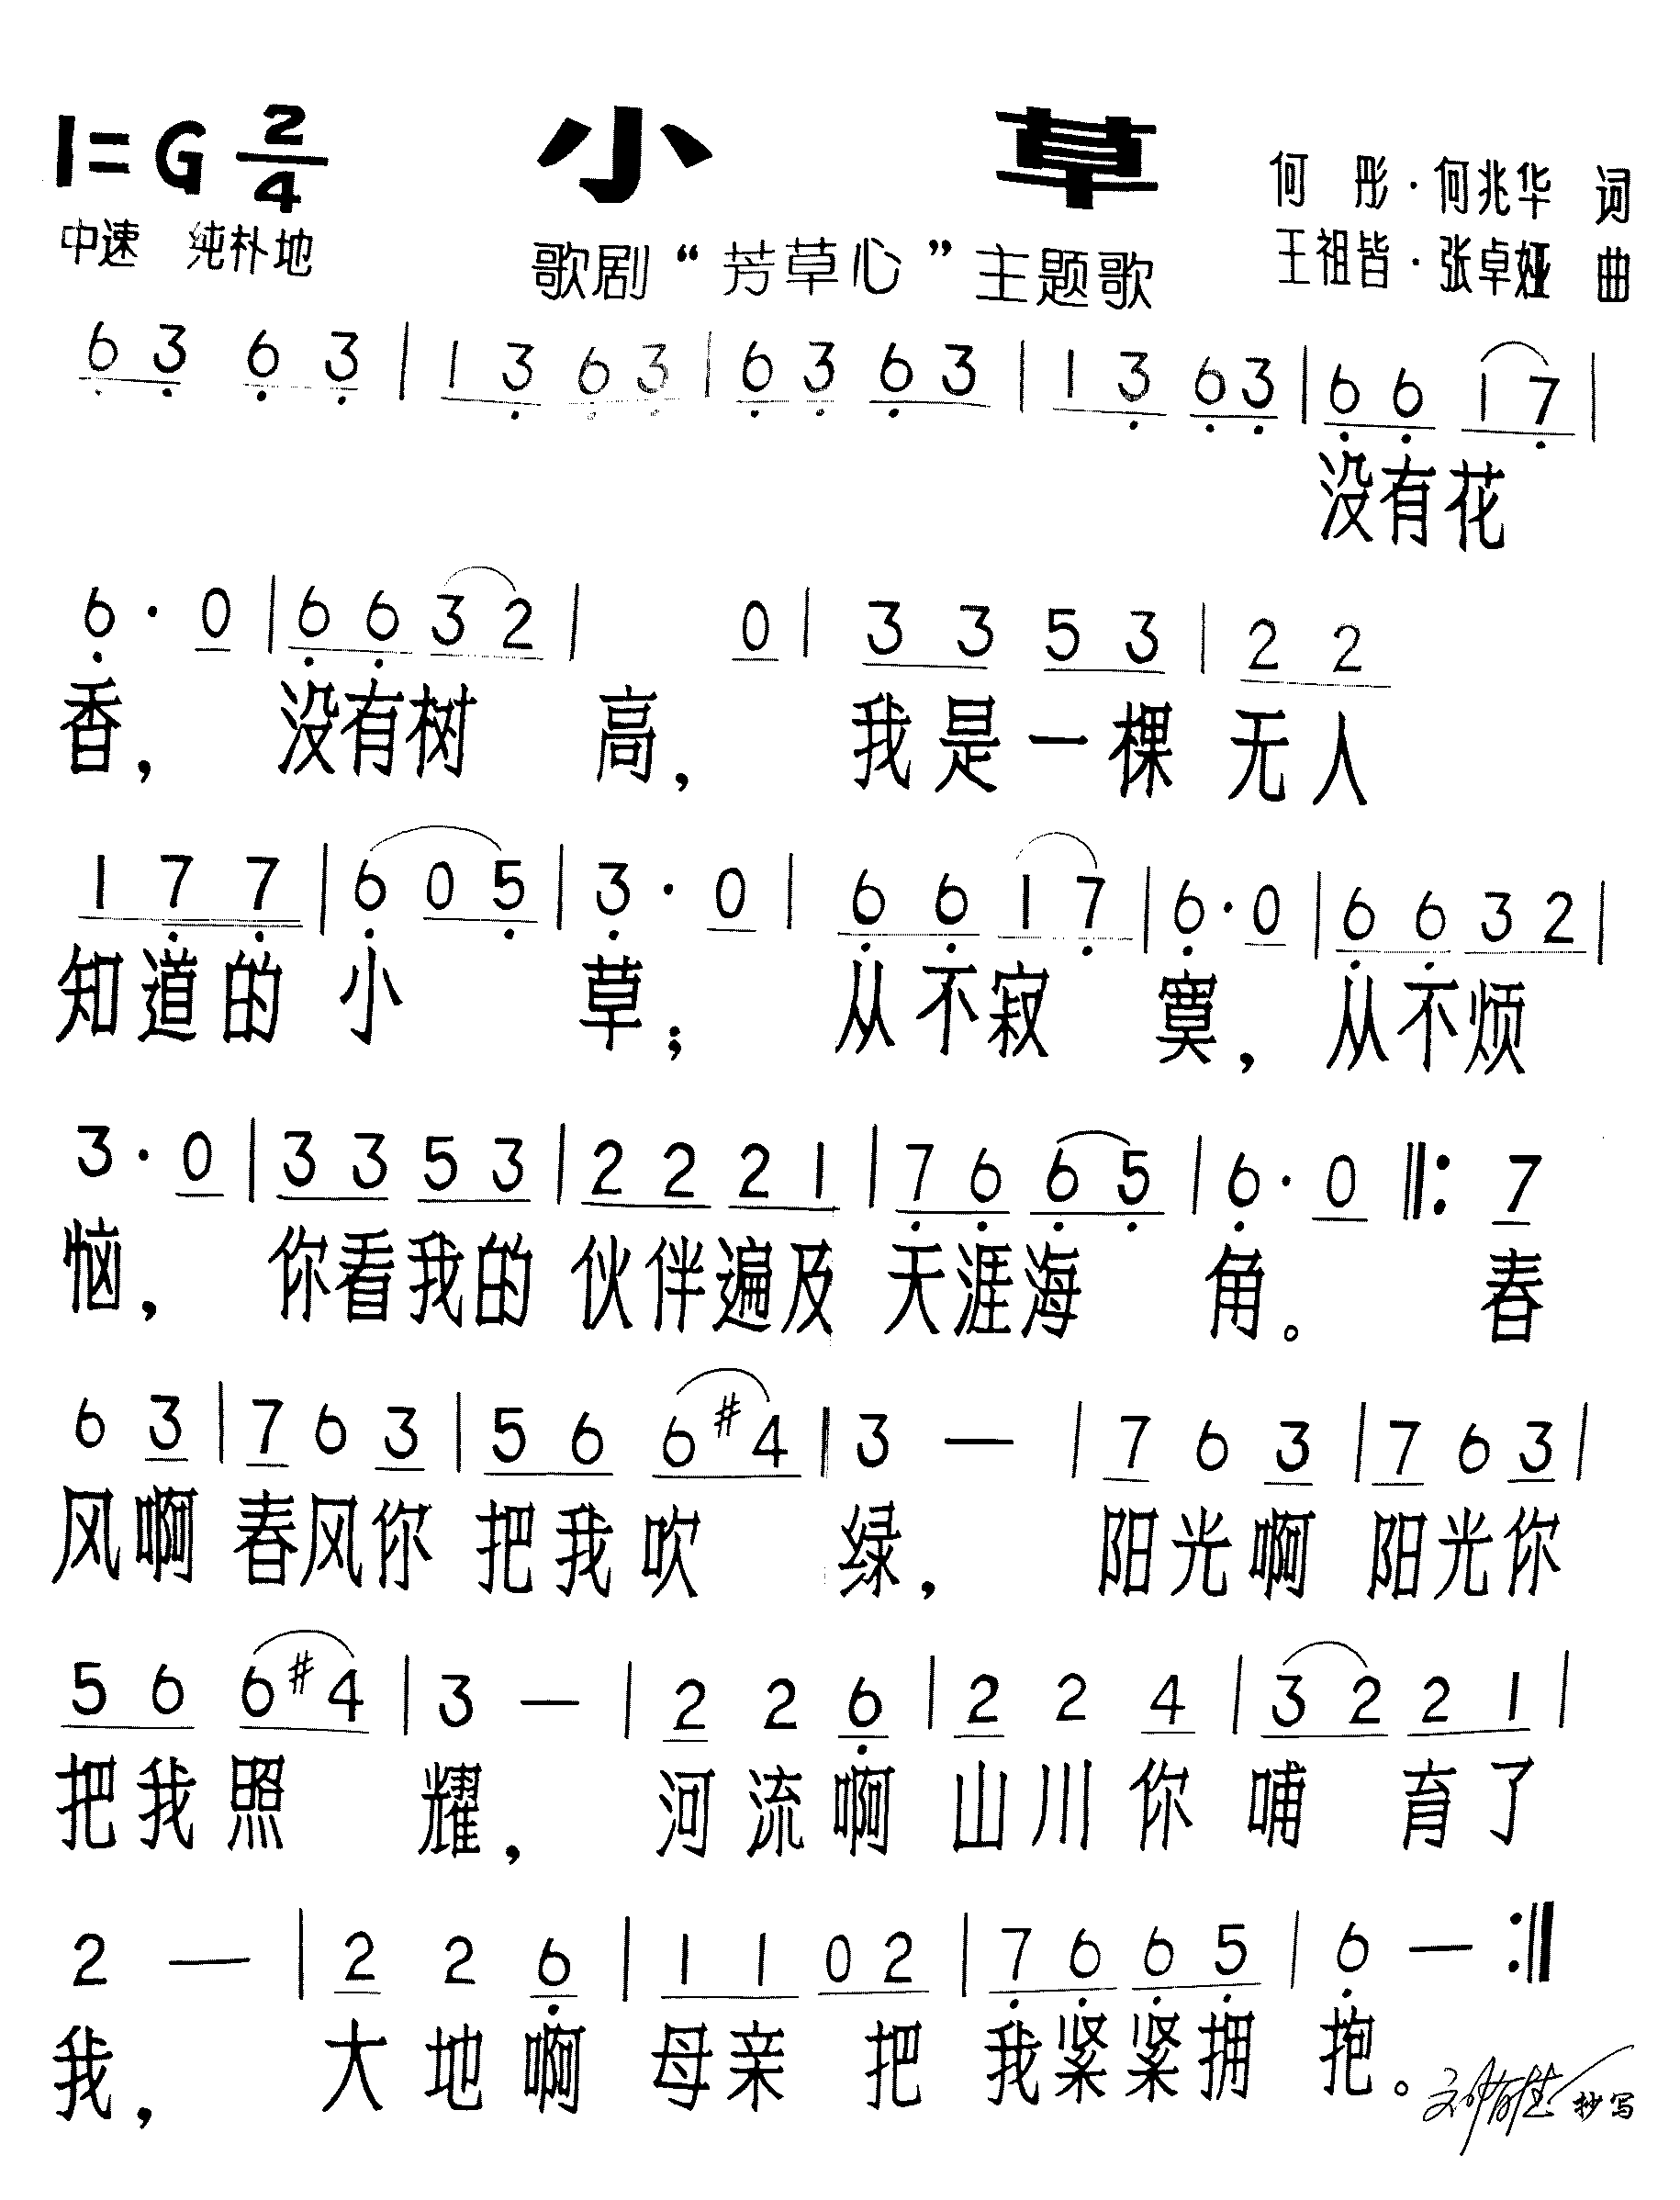 1=G 2/4 小 草 何 彤·何兆华 词
中速 纯朴地 歌剧“芳草心”主题歌 王祖皆·张卓娅 曲
6 3 6 3 | 1 3 6 3 | 6 3 6 3 | 1 3 6 3 | 6 6 1 7 |
没有花
6 · 0 | 6 6 3 2 | 0 | 3 3 5 3 | 2 2
香, 没有树 高, 我是一棵 无人
1 7 7 | 6 0 5 | 3 · 0 | 6 6 1 7 | 6 · 0 | 6 6 3 2 |
知道的 小 草; 从不寂 寞, 从不烦
3 · 0 | 3 3 5 3 | 2 2 2 1 | 7 6 6 5 | 6 · 0 ‖: 7
恼, 你看我的 伙伴遍及 天涯海 角。 春
6 3 | 7 6 3 | 5 6 6 #4 | 3 — | 7 6 3 | 7 6 3 |
风啊 春风你 把我吹 绿, 阳光啊 阳光你
5 6 6 #4 | 3 — | 2 2 6 | 2 2 4 | 3 2 2 1 |
把我照 耀, 河流啊 山川你 哺 育了
2 — | 2 2 6 | 1 1 0 2 | 7 6 6 5 | 6 — :‖
我, 大地啊 母亲 把 我紧紧拥 抱。
抄写